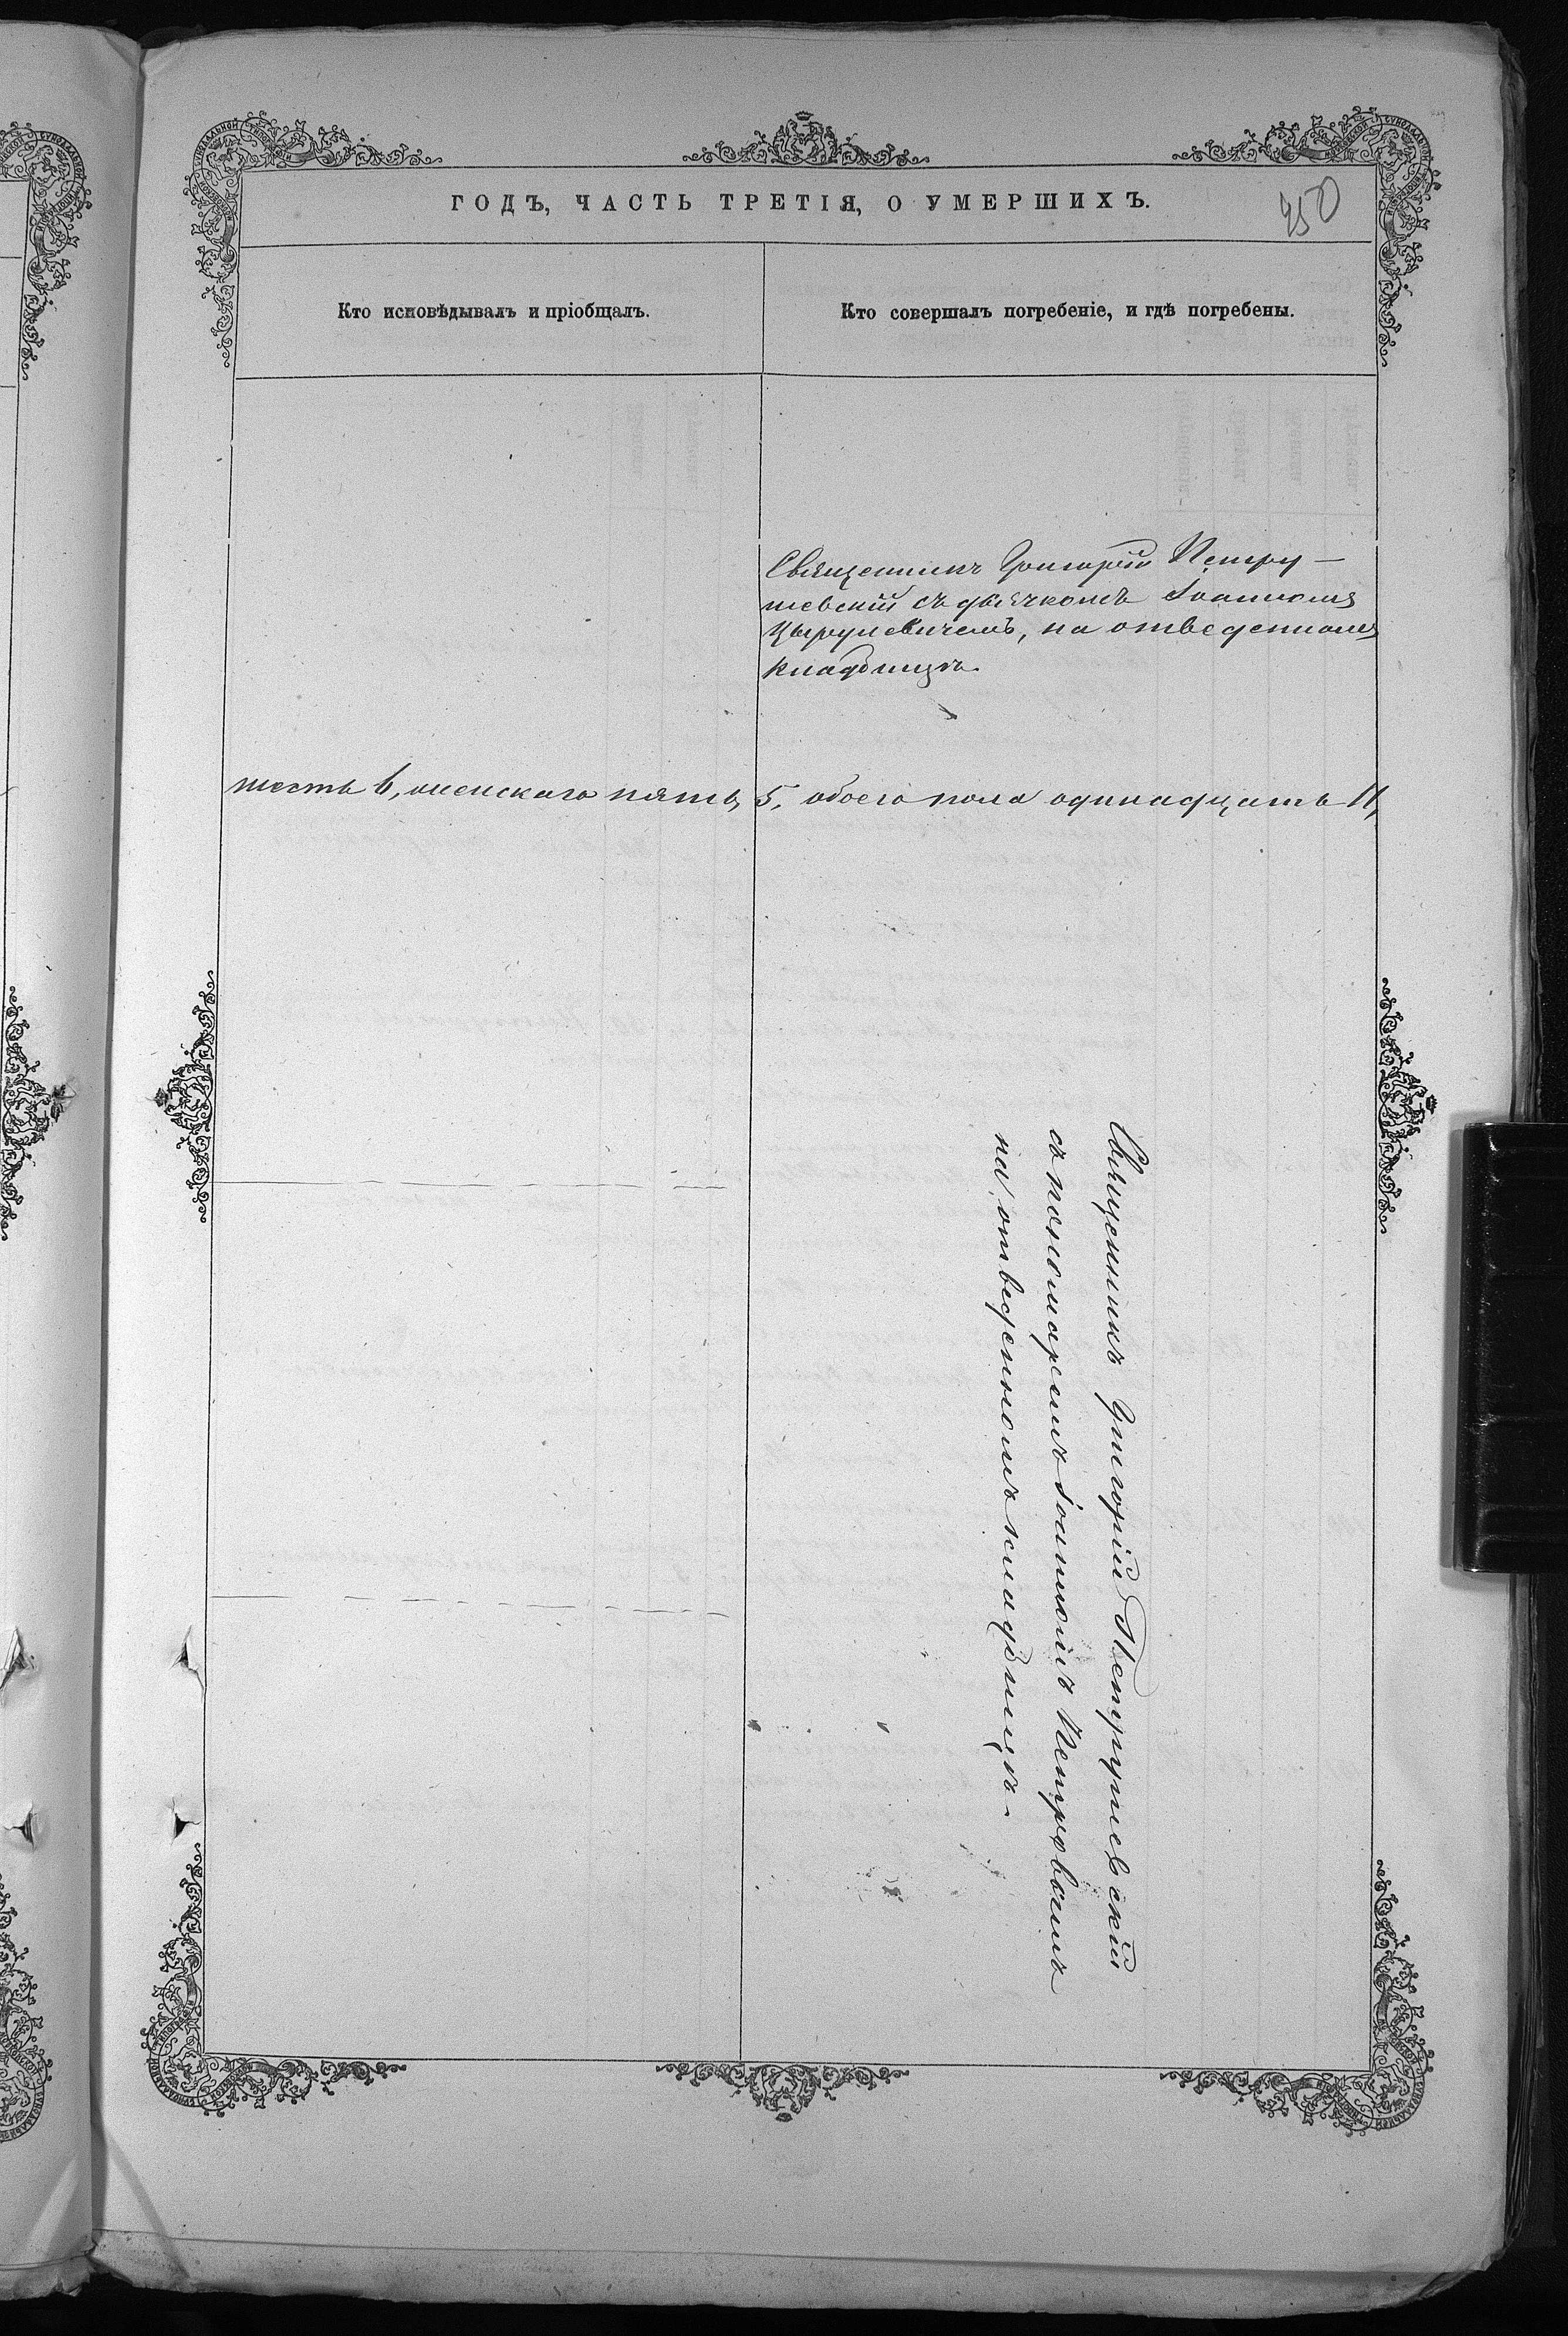 ГОДЪ, ЧАСТЬ ТРЕТІЯ, О УМЕРШИХЪ.
450
Кто исповѣдывалъ и пріобщалъ.
Кто совершалъ погребеніе, и гдѣ погребены.
Священникъ Григорій Петру-
шевскій съ дьячкомъ Іоанномъ
Цырулевичемъ, на отведенномъ
кладбищѣ.
шесть 6, женскаго пять, 5, обоего пола одинадцать 11,
Священникъ Григорій Петрушевскій
съ пономаремъ Іоанномъ Петровымъ
на отведенномъ кладбищѣ.